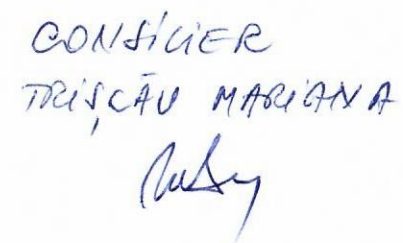 CONSILIER
TRIȘCĂU MARIANA